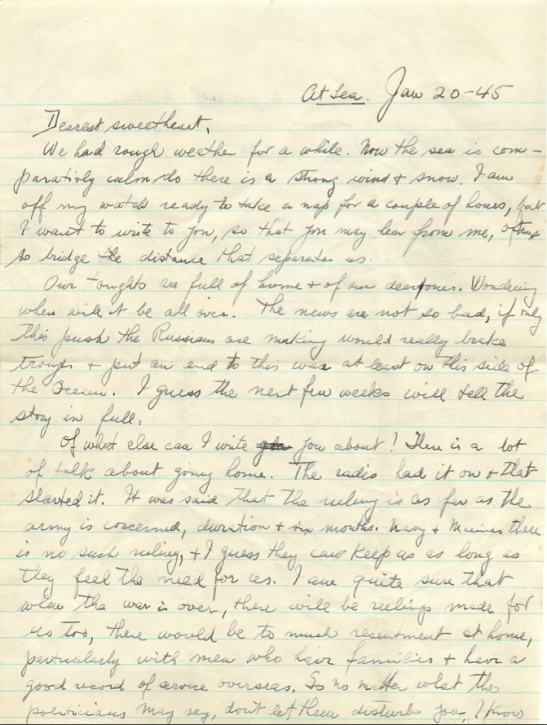 At Sea. Jan 20-45
Dearest sweetheart,
We had rough weather for a while. Now the sea is com-
parativly calm do there is a strong wind + snow. I am
off my watch ready to take a nap for a couple of hours, but
I want to write to you, so that you may hear from me,
to bridge the distance that separates us.
Our toughts are full of home + of our dear ones. Wondering
when will it be all over. The news are not so bad, if only
this push the Russians are making would really
trough + put an end to this war at least on this side of
the Ocean. I guess the next few weeks will tell the
story in full.
Of what else can I write you about! There is a lot
of talk about going home. The radio had it on + that
started it. It was said that the ruling is as far as the
army is concerned, duration + six months. Navy + Marines there
is no such ruling, + I guess they can keep us as long as
they feel the need for us. I am quite sure that
when the war is over, there will be rulings made for
us too, there would be to much resentment at home,
particularly with men who have families + have a
good record of service overseas. So no matter what the
politicians may say, don't let them disturb you, I know